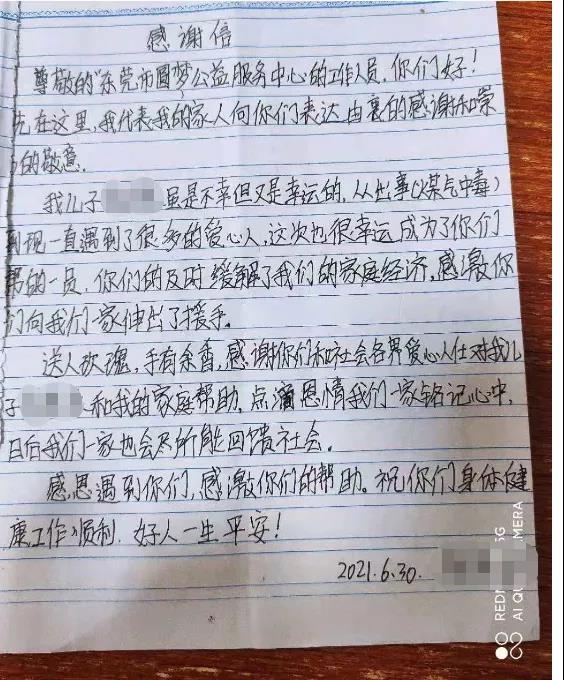 感谢信
尊敬的“东莞市圆梦公益服务中心的工作人员,你们好!
先在这里,我代表我的家人向你们表达由衷的感谢和崇
的敬意.
我儿子虽是不幸但又是幸运的,从出事(煤气中毒)
到现一直遇到了很多的爱心人,这次也很幸运成为了你们
帮的一员,你们的及时缓解了我们的家庭经济,感激你
们向我们一家伸出了援手。
送人玫瑰,手有余香,感谢你们和社会各界爱心人仕对我儿
子和我的家庭帮助。点滴恩情我们一家铭记心中,
日后我们一家也会尽所能回馈社会.
感恩遇到你们,感激你们的帮助。祝你们身体健
康工作顺利.好人一生平安!
2021.6.30.
REDMI 5G
AI QU CAMERA